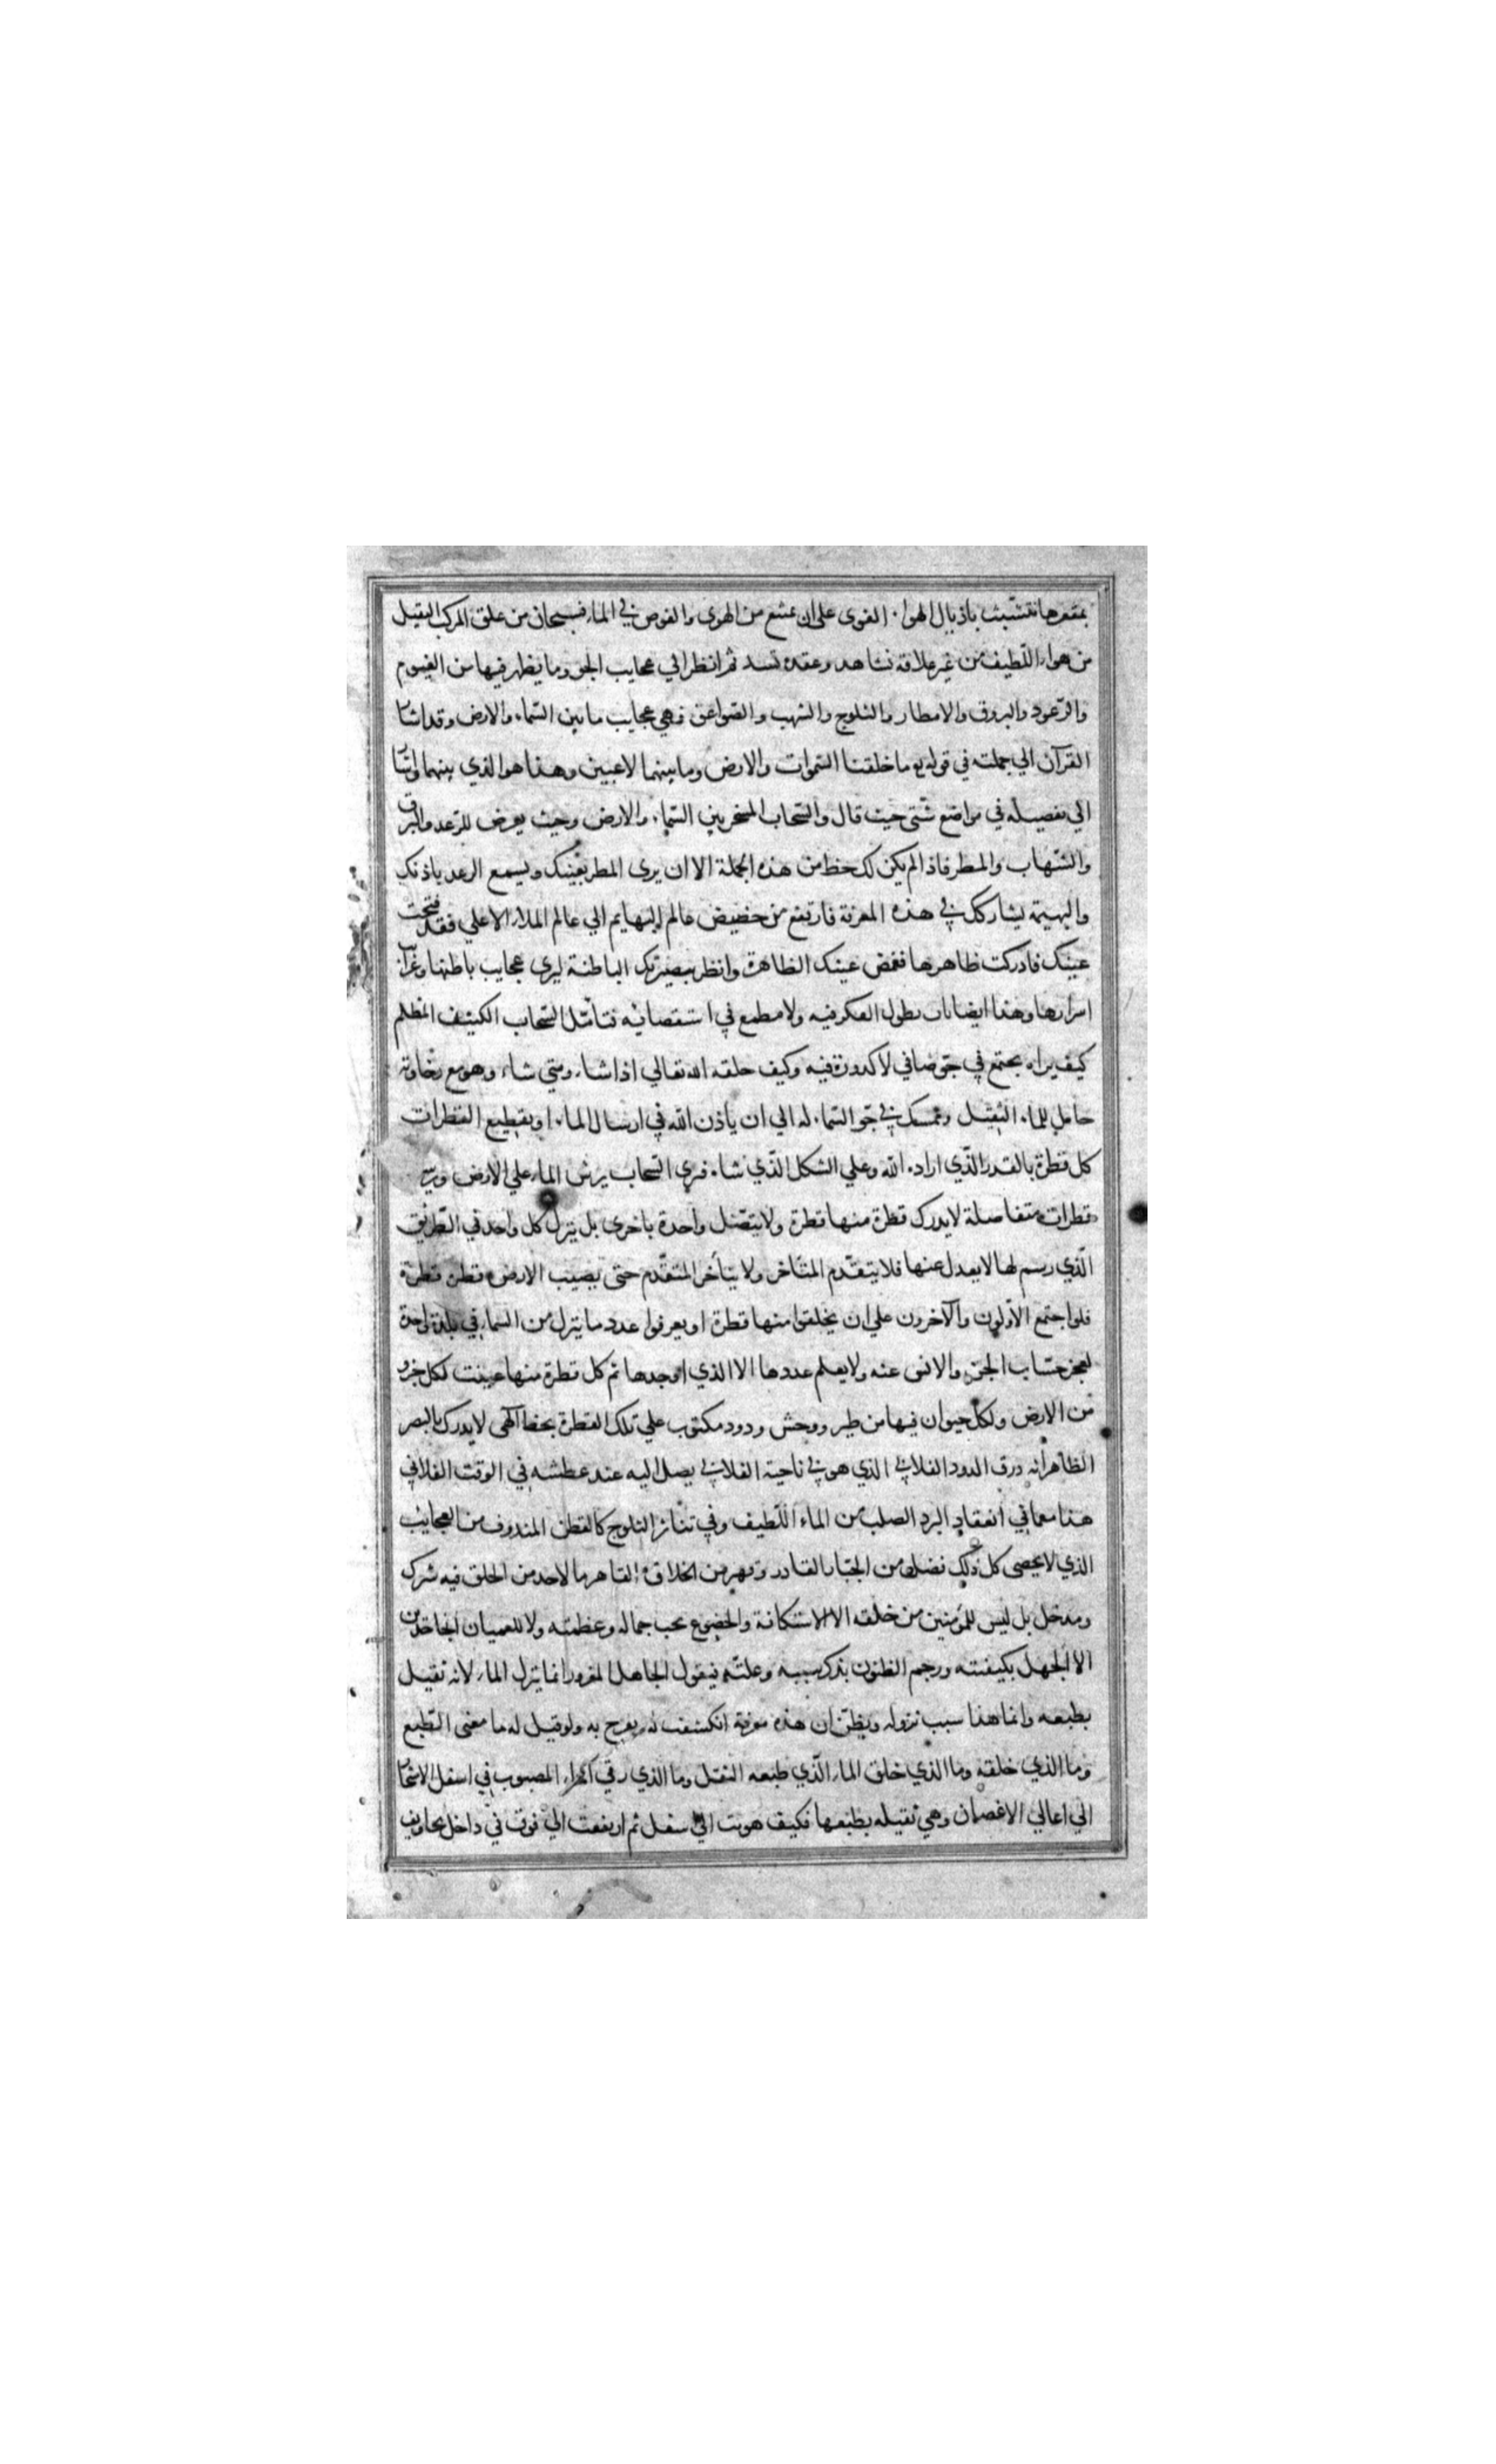 بمقعرها تتشبث باذيال الهواء القوى على ان يمتنع من الهوى والغوص في الماء فسبحان من علق المركب الثقيل
من هواء اللطيف من غير علاقة تشاهد وعقدة تسد ثم انظر الي عجايب الجو وما يظهر فيها من الغيوم
والرعود والبروق والامطار والثلوج والشهب والصواعق فهي عجايب ما بين السماء والارض وقد اشار
القرآن الي جملته في قوله تع ما خلقنا السموات والارض وما بينهما لاعبين وهذا هو الذي بينهما واشار
الي تفصيله في مواضع شتى حيث قال والسحاب المسخر بين السماء والارض وحيث يعرض للرعد والبرق
والشهاب والمطر فاذا لم يكن لك حظ من هذه الجملة الا ان يرى المطر بعينك ويسمع الرعد باذنك
والبهيمة يشاركك في هذه المعرفة فارتفع من حضيض عالم البهايم الي عالم الملاء الاعلي فقد فتحت
عينك فادركت ظاهرها فغمض عينك الظاهرة وانظر ببصيرتك الباطنة ليرى عجايب باطنها وغرائب
اسرارها وهذا ايضا باب يطول الفكر فيه ولا مطمع في استقصائه فتامل السحاب الكثيف المظلم
كيف يراه يجتمع في جو صافي لا كدورة فيه وكيف خلقه الله تعالي اذا شاء ومتي شاء وهو مع رخاوته
حامل للماء الثقيل وممسك في جو السماء له الي ان ياذن الله في ارسال الماء او يقطيع القطرات
كل قطرة بالقدر الذي اراده الله وعلي الشكل الذي شاء فري السحاب يرش الماء علي الارض ويرسله
قطرات متفاصلة لا يدرك قطرة منها قطرة ولا يتصل واحدة باخرى بل ينزل كل واحد في الطريق
الذي رسم لها لا يعدل عنها فلا يتقدم المتاخر ولا يتأخر المتقدم حتى يصيب الارض قطرة قطرة
فلو اجتمع الاولون والآخرون علي ان يخلقوا منها قطرة او يعرفوا عدد ما ينزل من السماء في بلدة واحدة
لعجز حساب الجن والانس عنه ولا يعلم عددها الا الذي اوجدها ثم كل قطرة منها عينت لكل جزء
من الارض ولكل حيوان فيها من طير ووحش ودود مكتوب علي تلك القطرة بخط آلهى لا يدرك بالبصر
الظاهر انه رزق الدود الفلاني الذي هو في ناحية الفلاني يصل اليه عند عطشه في الوقت الفلاني
هذا مع ما في انعقاد البرد الصلب من الماء اللطيف وفي تناثر الثلوج كالقطن المندوف من العجايب
الذي لا يحصى كل ذلك فضل من الجبار القادر وقهر من الخلاق القاهر ما لاحد من الخلق فيه شرك
ومدخل بل ليس للمؤمنين من خلقه الا الاستكانة والخضوع تحب جماله وعظمته ولا للعميان الجاحدين
الا الجهل بكيفيته ورجم الظنون بذكر سببه وعلته فيقول الجاهل المغرور انما ينزل الماء لانه ثقيل
بطبعه وانما هذا سبب نزوله ويظن ان هذه معرفة انكشفت له يفرح به ولو قيل له ما معنى الطبع
وما الذي خلقه وما الذي خلق الماء الذي طبعه الثقل وما الذي رقي الماء المصبوب في اسفل الاشجار
الي اعالي الاغصان وهي ثقيله بطبعها فكيف هوت الي سفل ثم ارتفعت الي فوق في داخل تجاويف